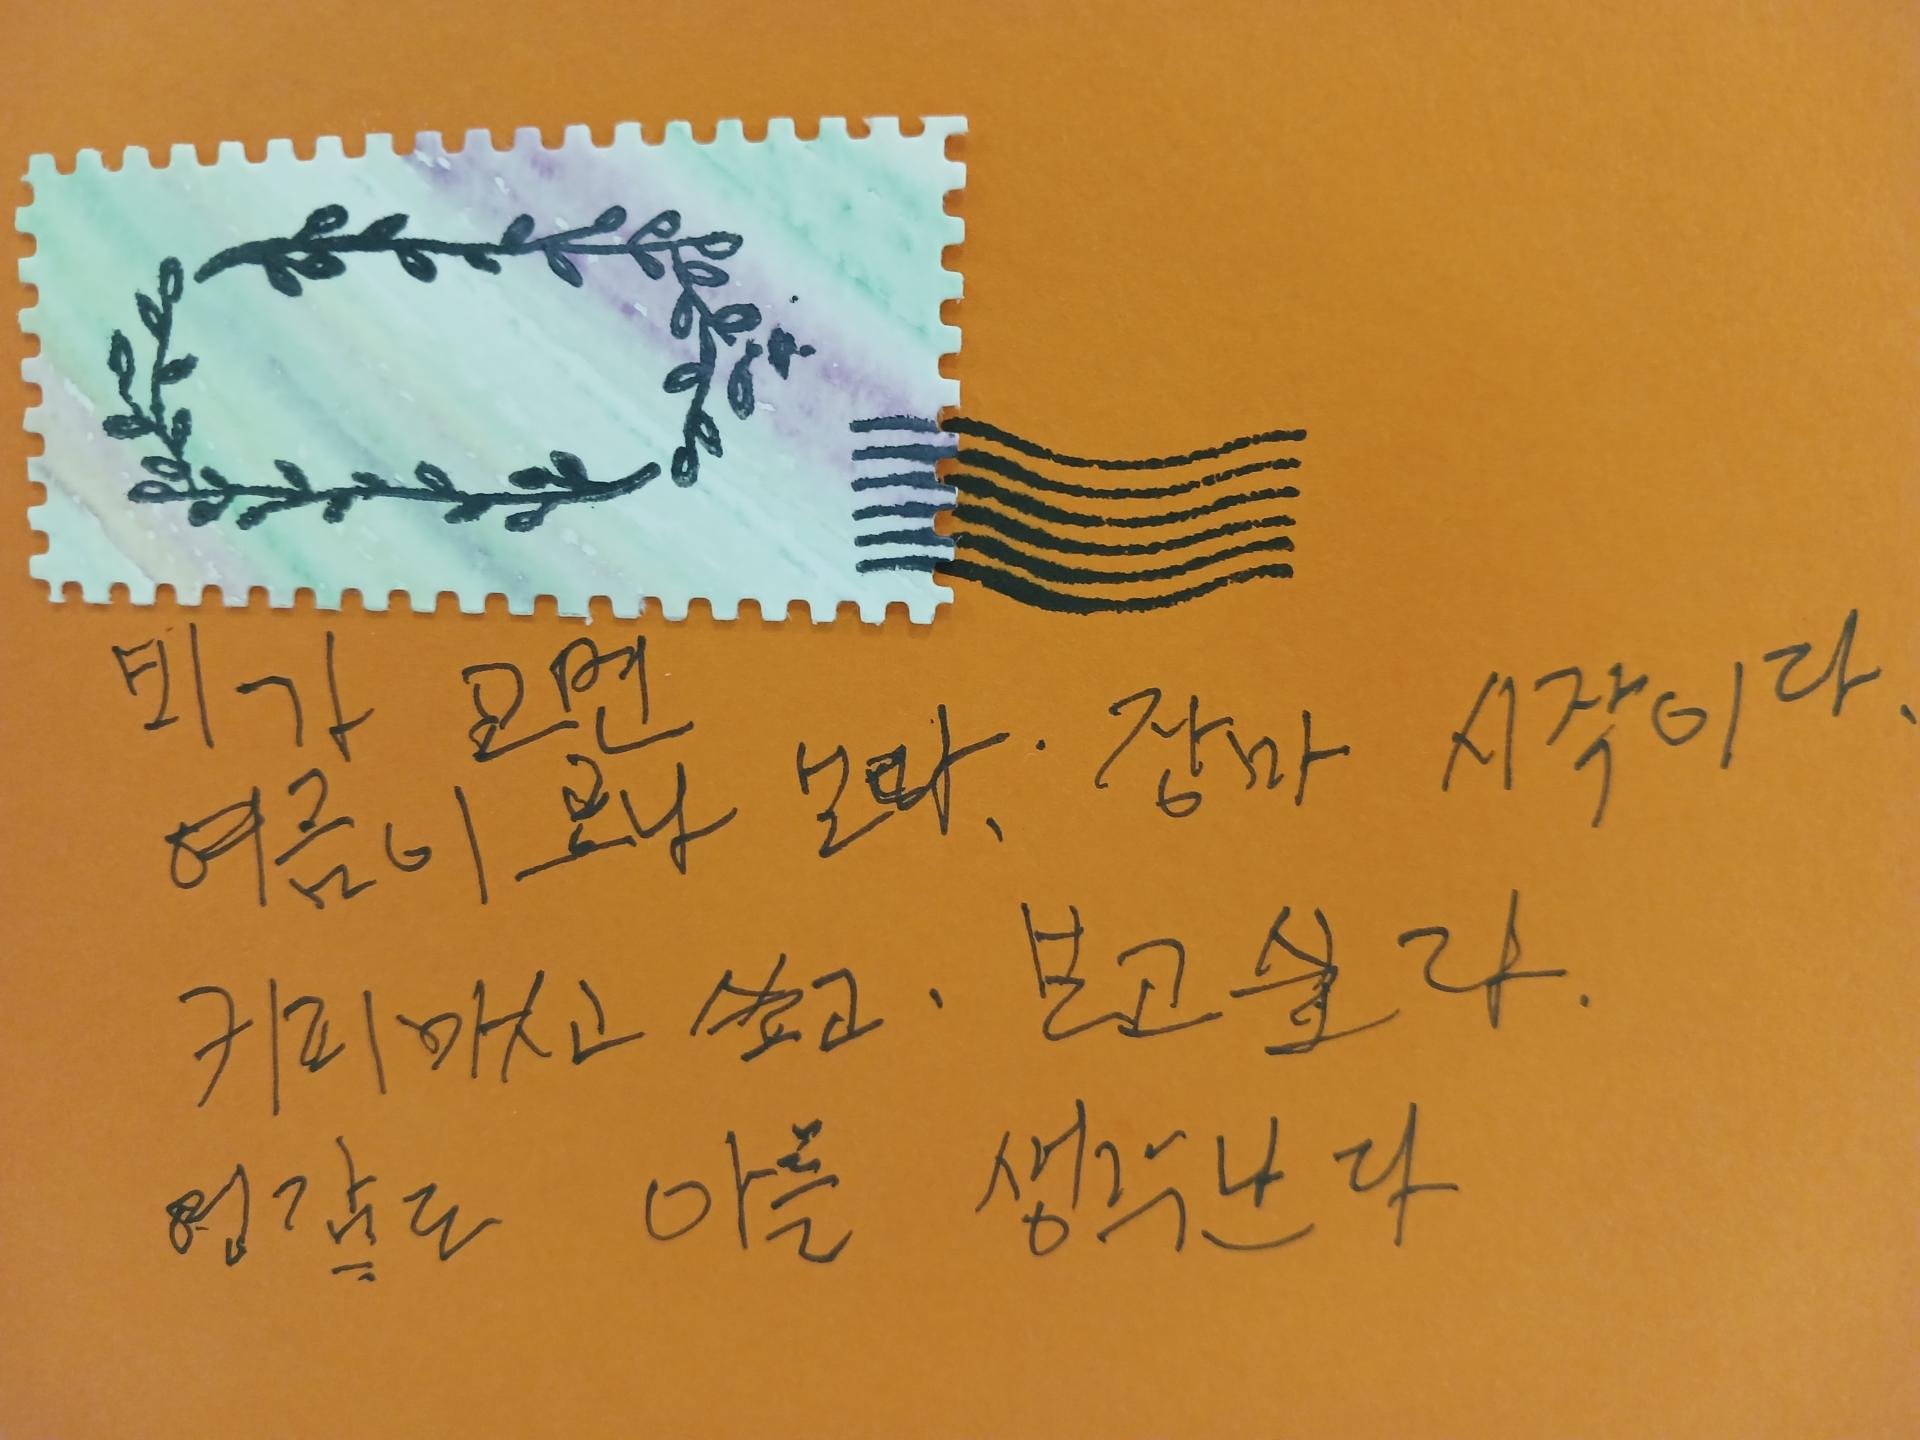 비가 오면
여름이 오나 보다. 장마 시작이다.
커피 마시고 싶고. 보고 싶다.
영감도 아들 생각난다